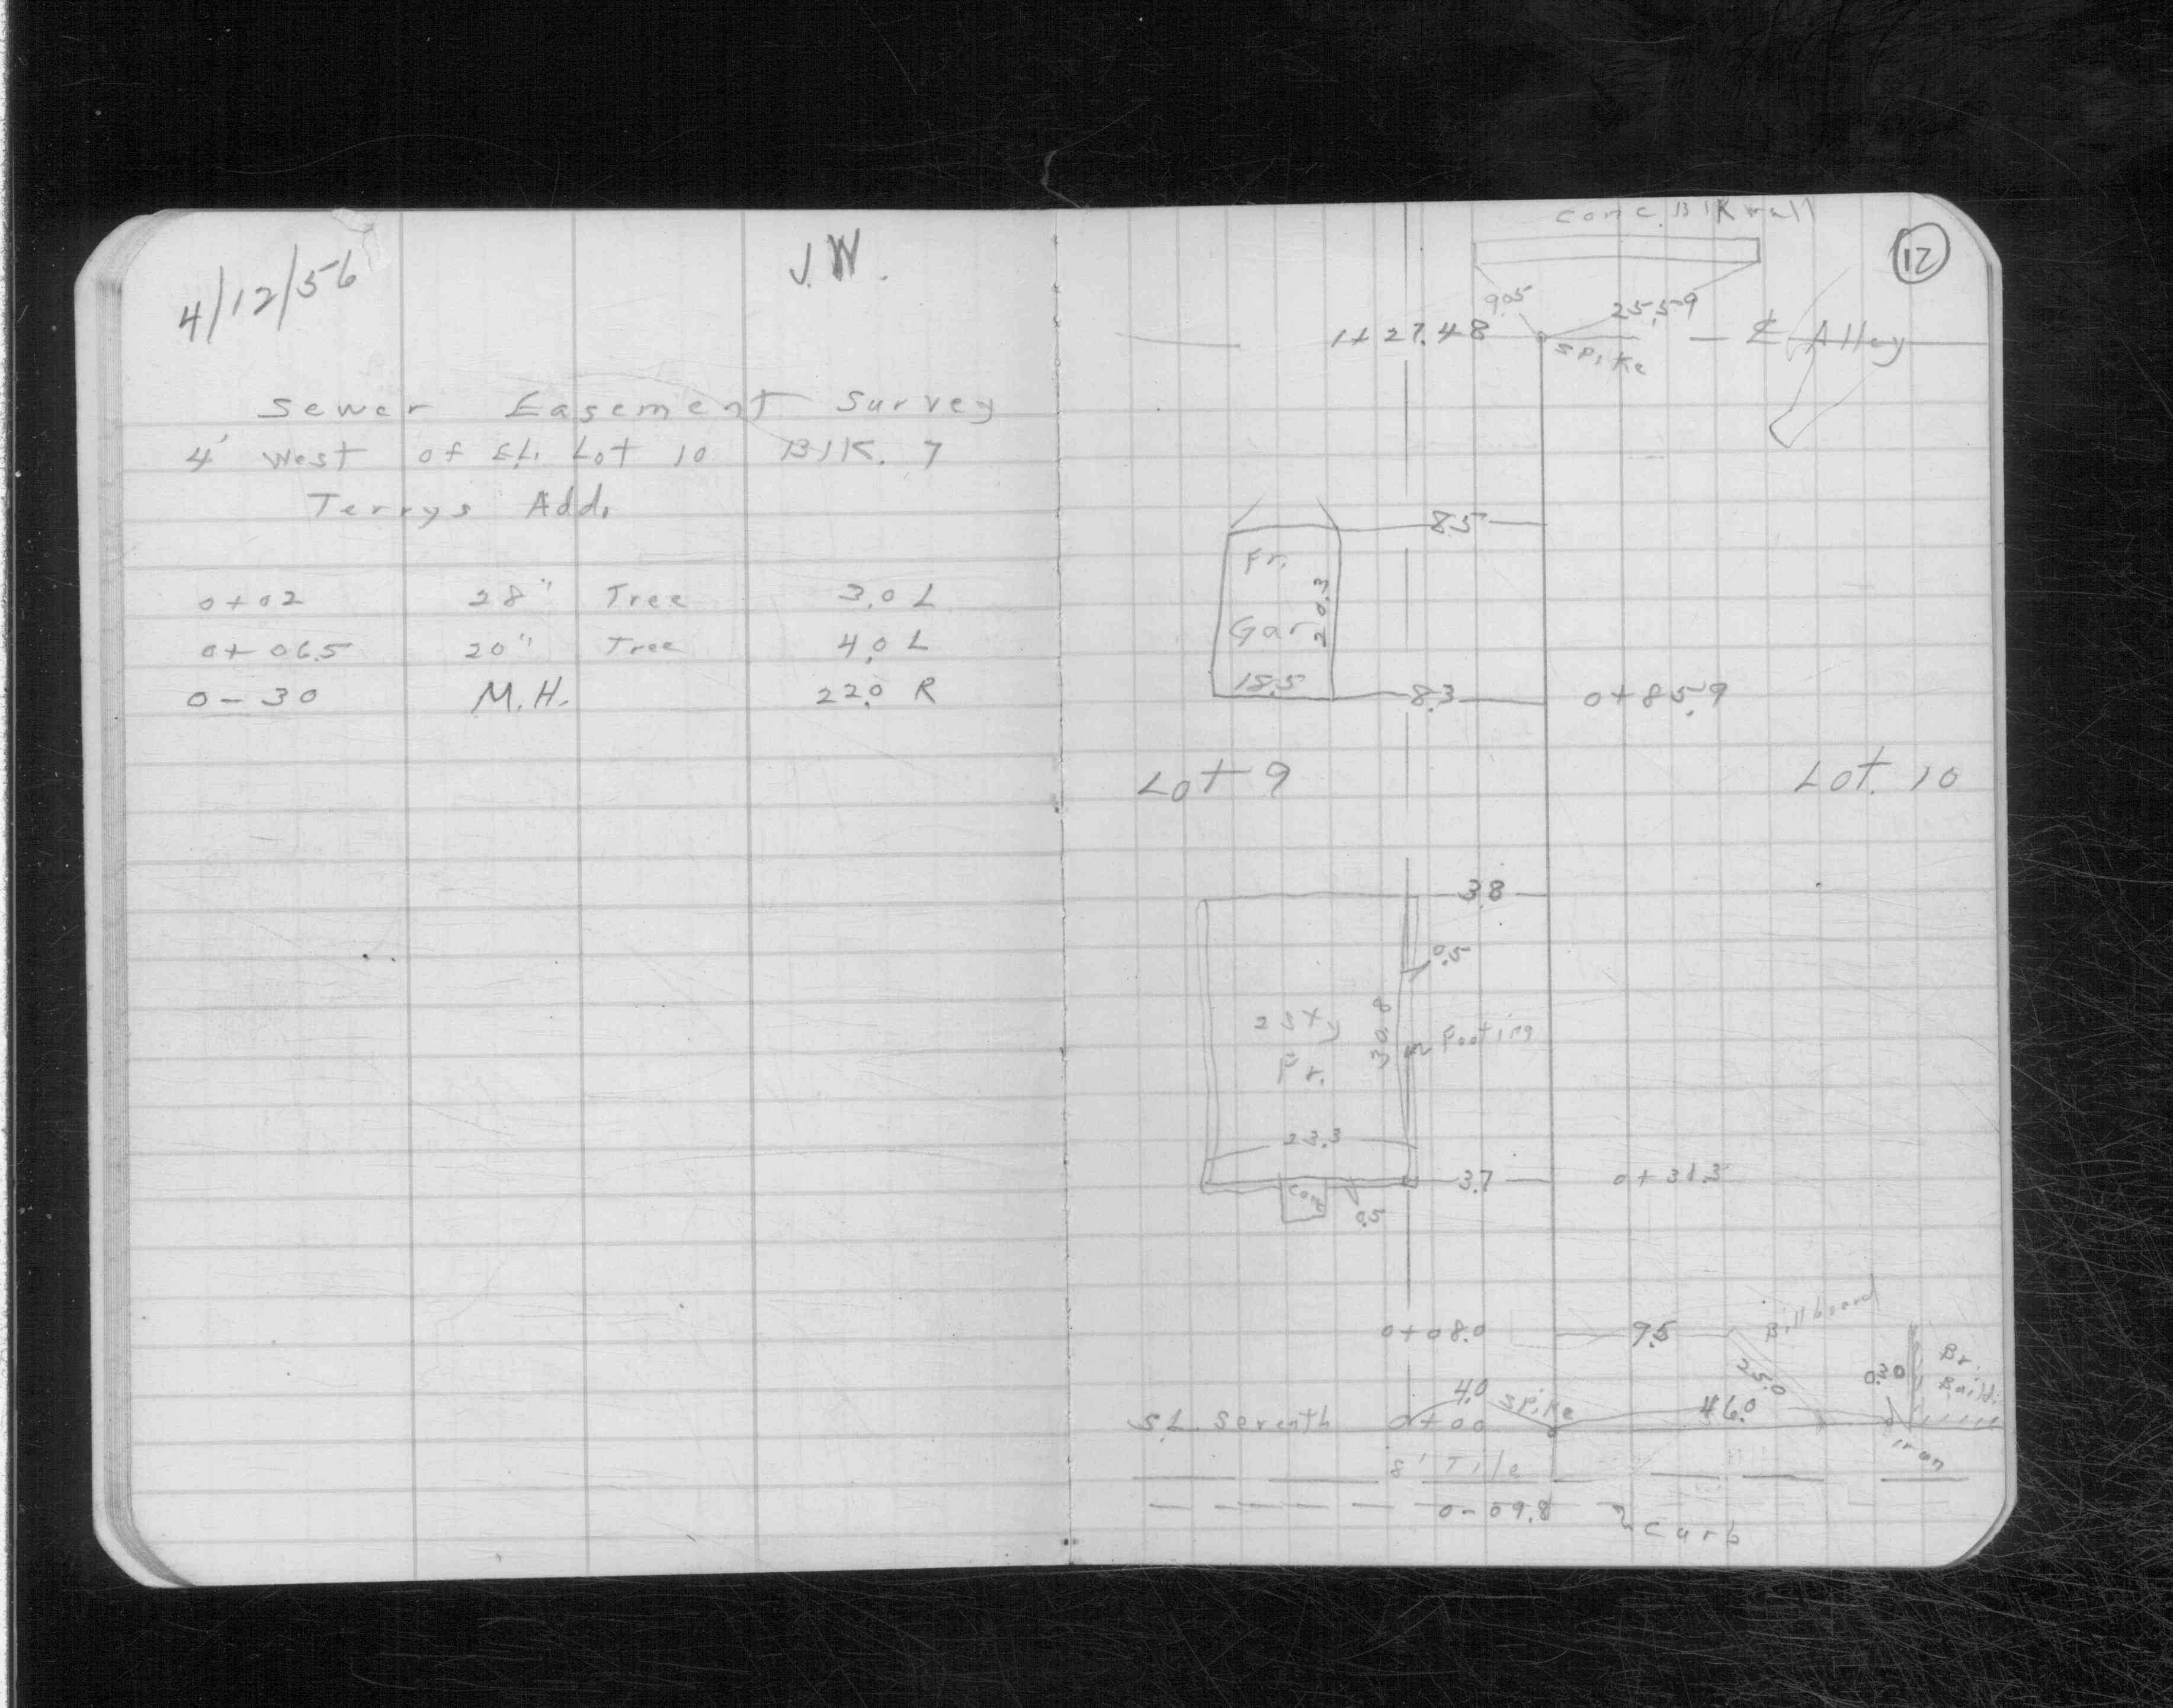 4/12/56
J.W.
Sewer Easement Survey
4' West of E.L. Lot 10 Blk. 7
Terrys Add.
0+02 28" Tree 3.0 L
0+06.5 20" Tree 4.0 L
0-30 M.H. 22.0 R
12
Conc. Blk wall
9.05 25.59
1+27.48 Spike ℄ Alley
8.5
Fr.
Gar
20.3
18.5
8.3 0+85.9
Lot 9 Lot. 10
3.8
0.5
2 Sty
Fr.
30.8
Footing
23.3
3.7 0+31.3
Conc
0.5
Billboard
0+08.0 9.5
25.0
0.30 Br.
Build.
4.0 Spike 46.0
S.L. Seventh 0+00
Iron
8" Tile
0-09.8 Curb